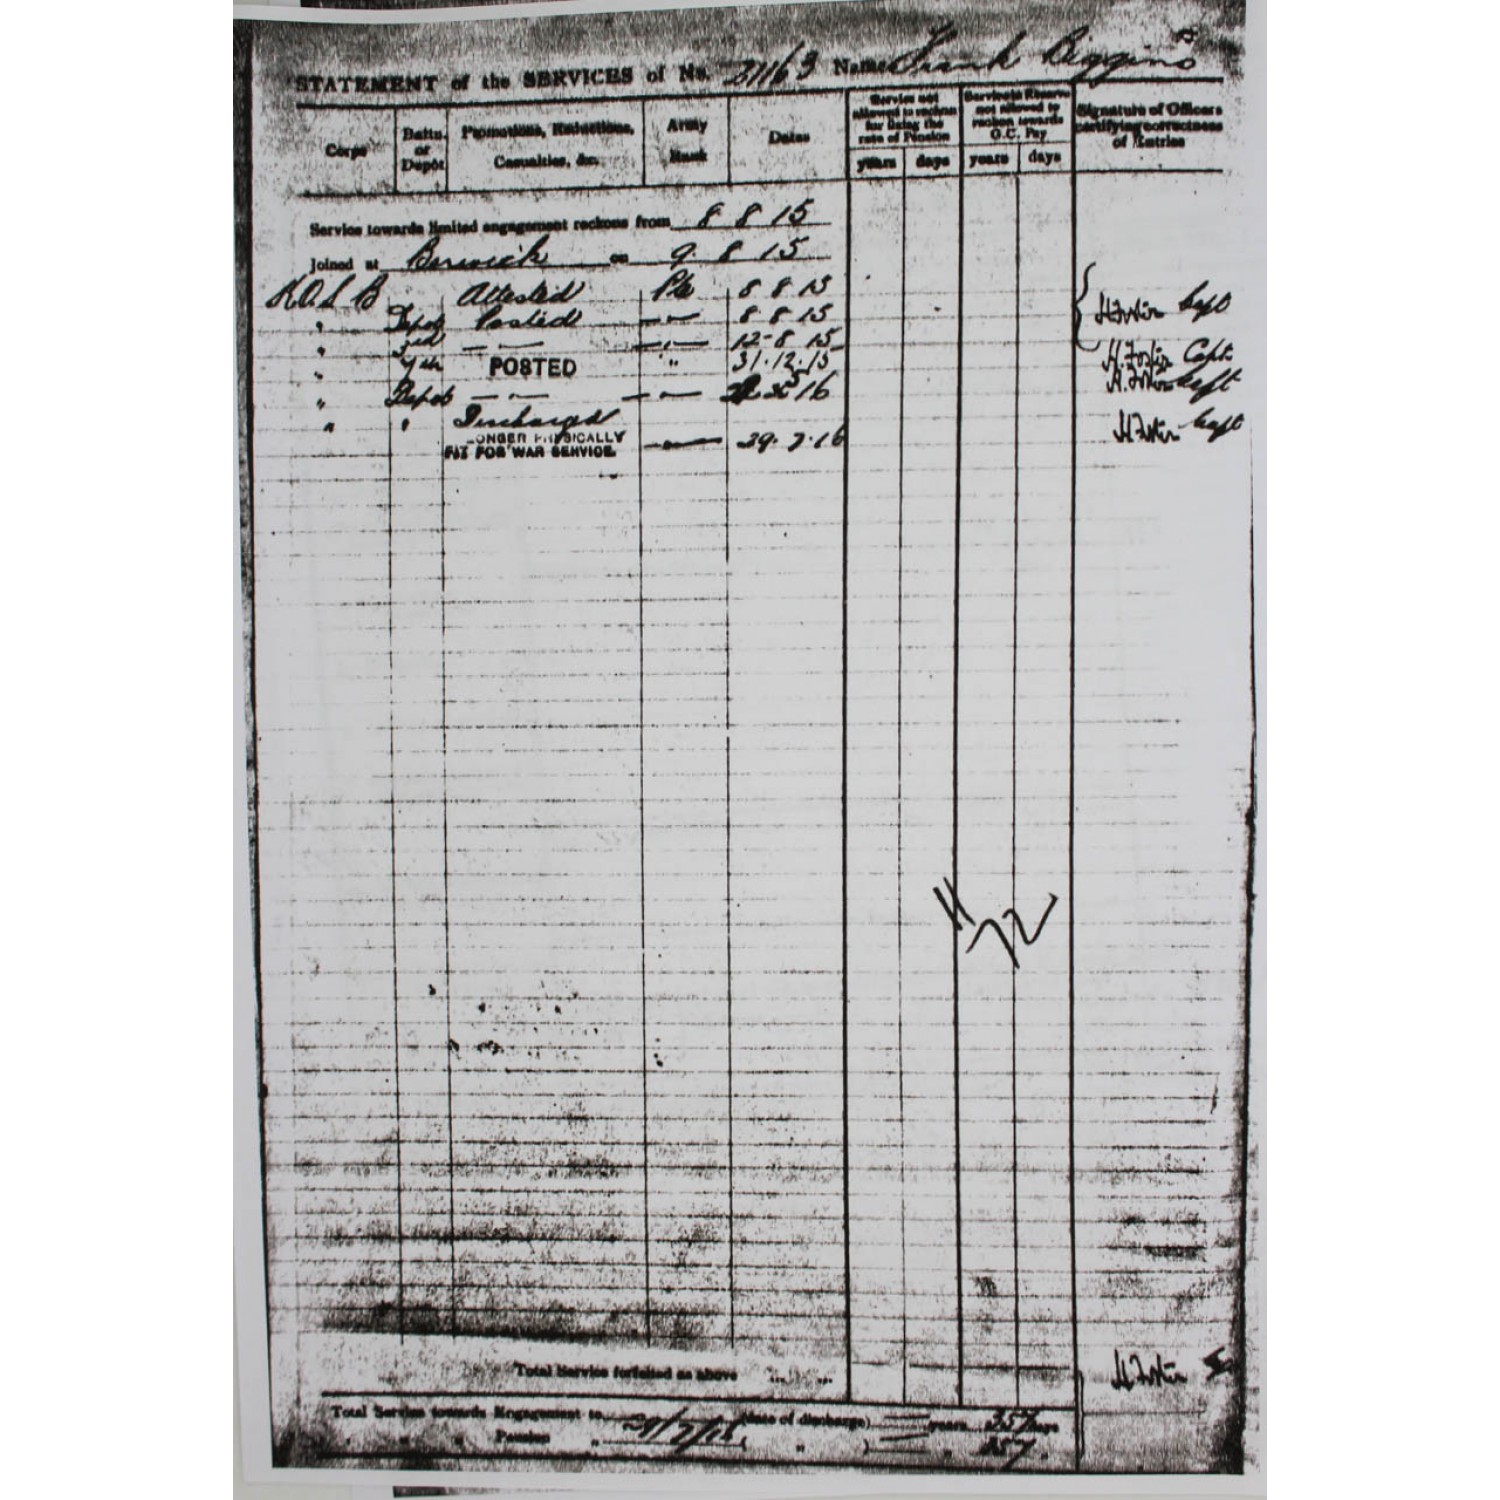 STATEMENT of the SERVICES of No. 31163 Name Frank Higgins
Corps
Battn. or Depôt
Promotions, Reductions, Casualties, &c.
Army Rank
Dates
Service not allowed to reckon for fixing the rate of Pension
years days
Service in Reserve not allowed to reckon towards G.C. Pay
years days
Signature of Officers certifying correctness of Entries
Service towards limited engagement reckons from 8 8 15
Joined at Berwick on 9. 8 15
K.O.S.B Attested Pte 8 8 15
" Depot Posted — " — 8 8 15 H Foster Capt
" 3rd — " — — " — 12-8 15
" 7th POSTED " 31.12.15 H. Foster Capt.
" Depot — " — — " — 5 16 H. Foster Capt
" " Discharged
LONGER PHYSICALLY
FIT FOR WAR SERVICE. — " — 29. 7. 16 H Foster Capt
H/72
Total Service forfeited as above ... ...
H Foster
Total Service towards Engagement to 29/7/16 (date of discharge) — years 357 days
" " Pension " ( " ) — " 357 "